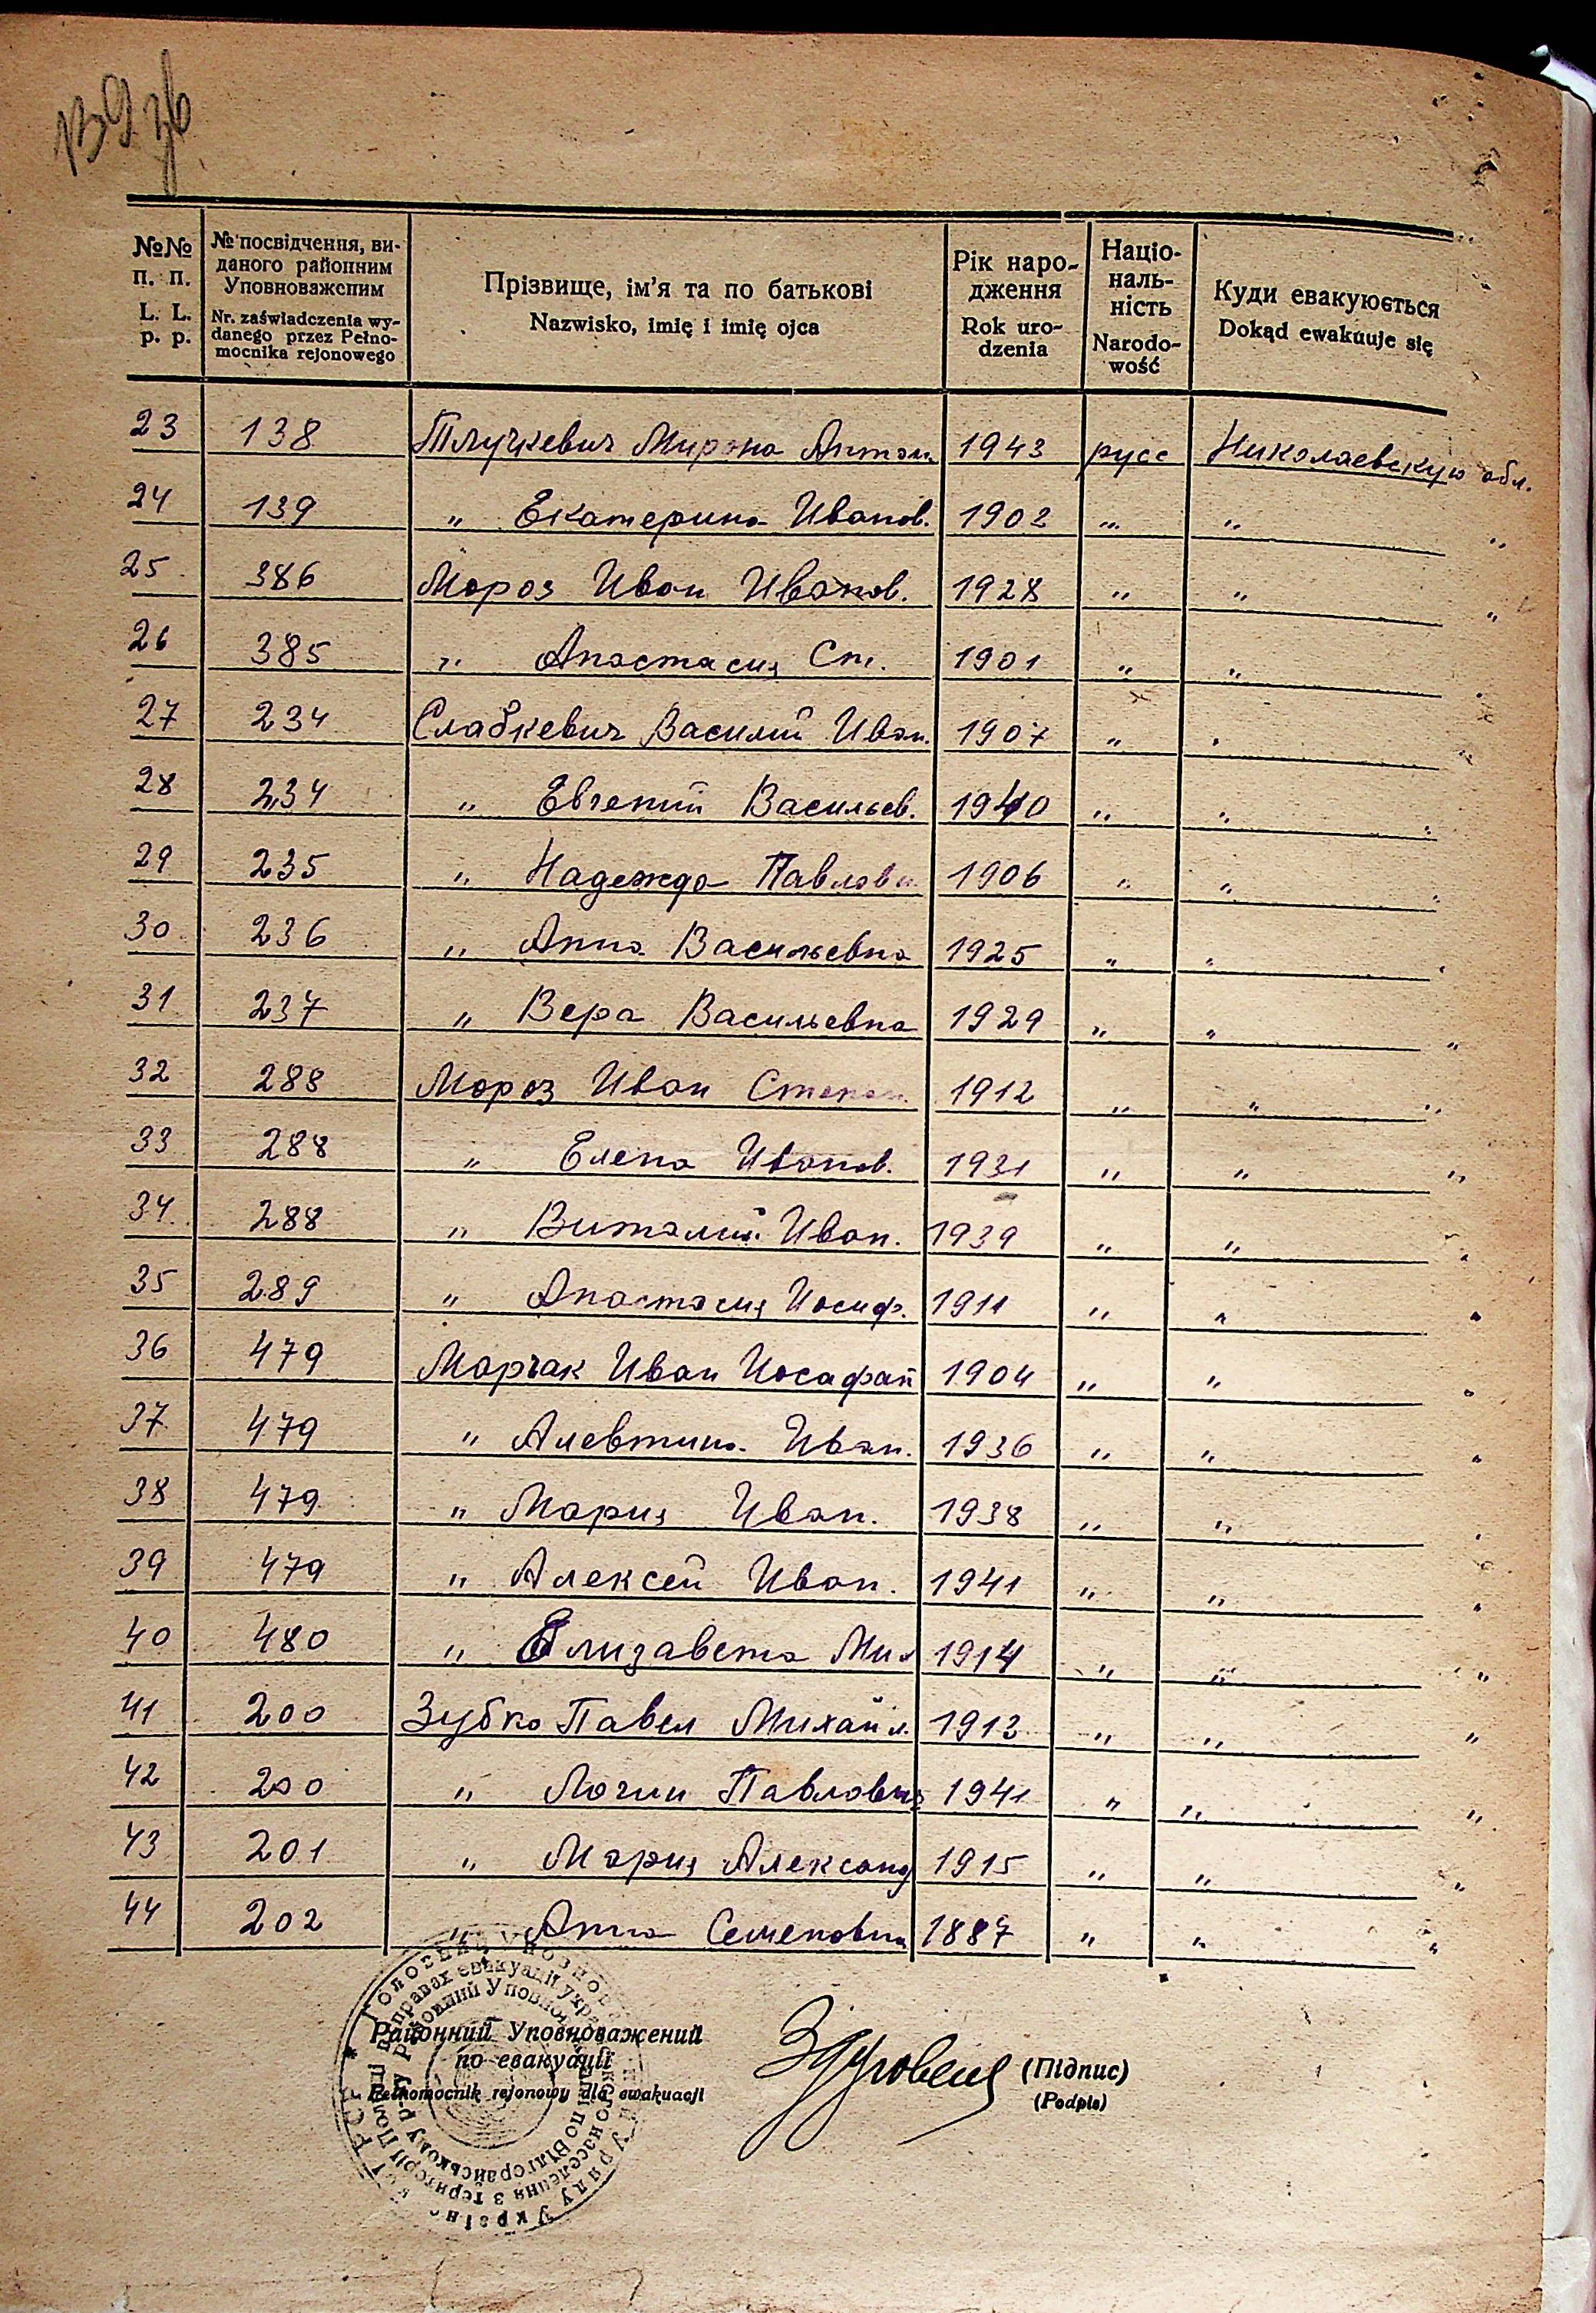 139 зв
№№ п. п. L. L. p. p.
№ посвідчення, виданого районним Уповноваженим Nr. zaświadczenia wydanego przez Pełnomocnika rejonowego
Прізвище, ім'я та по батькові Nazwisko, imię i imię ojca
Рік народження Rok urodzenia
Національність Narodowość
Куди евакуюється Dokąd ewakuuje się
23 138 Тлучкевич Мирона Антон 1943 русс Николаевскую обл.
24 139 " Екатерина Иванов. 1902 " " "
25 386 Мороз Иван Иванов. 1928 " " "
26 385 " Анастасия Ст. 1901 " " "
27 234 Слабкевич Василий Иван. 1907 " " "
28 234 " Евгений Васильев. 1940 " " "
29 235 " Надежда Павловн. 1906 " " "
30 236 " Анна Васильевна 1925 " " "
31 237 " Вера Васильевна 1929 " " "
32 288 Мороз Иван Степан. 1912 " " "
33 288 " Елена Иванов. 1931 " " "
34 288 " Виталий Иван. 1939 " " "
35 289 " Анастасия Иосиф. 1911 " " "
36 479 Марчак Иван Иосафат 1904 " " "
37 479 " Алевтина Иван. 1936 " " "
38 479 " Мария Иван. 1938 " " "
39 479 " Алексей Иван. 1941 " " "
40 480 " Елизавета Мих 1914 " " "
41 200 Зубко Павел Михайл. 1913 " " "
42 200 " Логин Павлович 1941 " " "
43 201 " Мария Александ 1915 " " "
44 202 " Анна Семеновна 1887 " " "
Районний Уповноважений
по евакуації
Pełnomocnik rejonowy dla ewakuacji
(Підпис)
(Podpis)